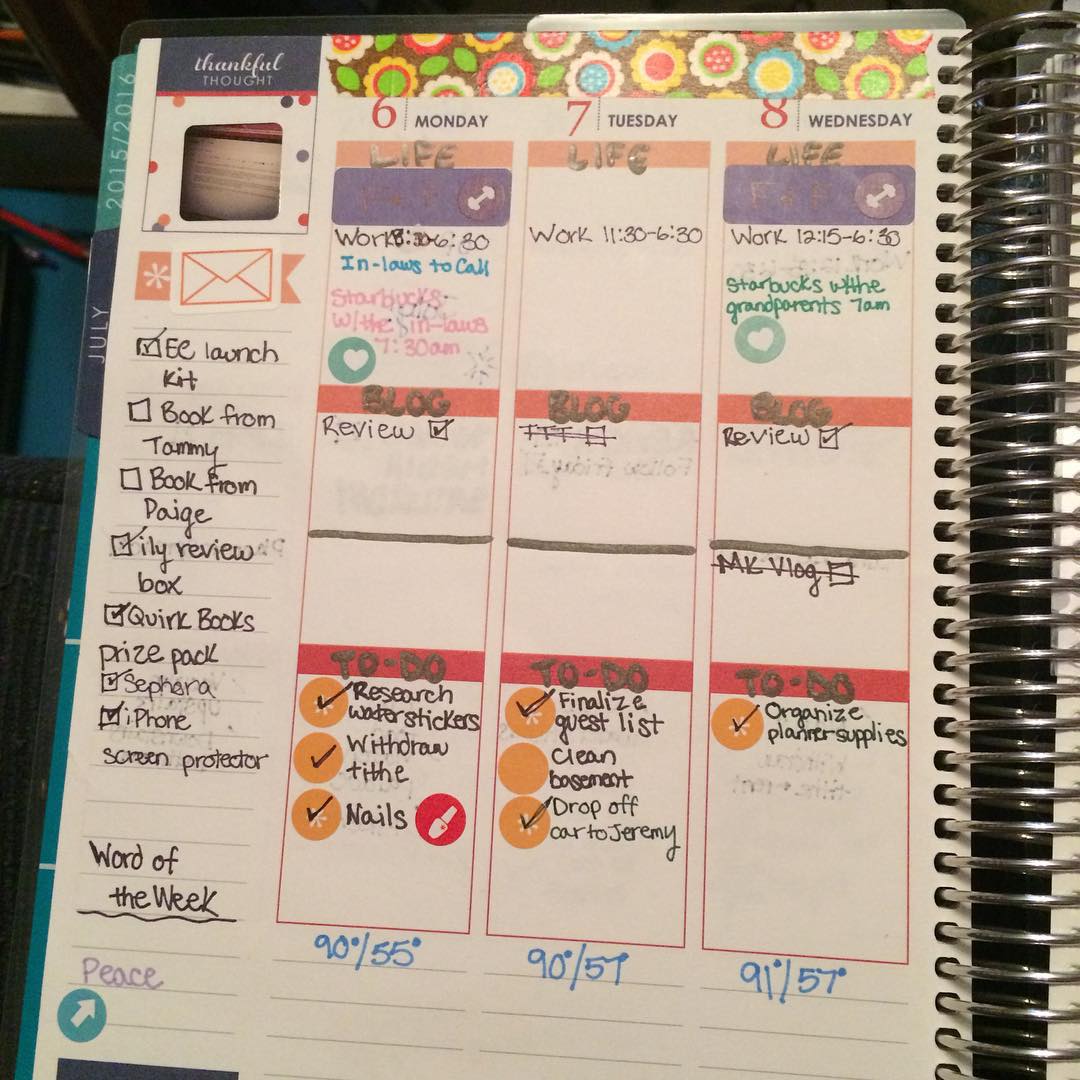 thankful
THOUGHT
2015/2016
JULY
EC launch
Kit
Book from
Tammy
Book from
Paige
ily review
box
Quirk Books
prize pack
Sephora
iPhone
screen protector
Word of
the Week
Peace
6 MONDAY
LIFE
Work 8:30-6:30
In-laws to Call
Starbucks
w/the in-laws
7:30am
BLOG
Review
TO-DO
Research
water stickers
Withdraw
tithe
Nails
90°/55°
7 TUESDAY
LIFE
Work 11:30-6:30
BLOG
TTT
TO-DO
Finalize
guest list
Clean
basement
Drop off
car to Jeremy
90°/57°
8 WEDNESDAY
LIFE
F&F
Work 12:15-6:30
Starbucks w/the
grandparents 7am
BLOG
Review
MK Vlog
TO-DO
Organize
planner supplies
91°/57°